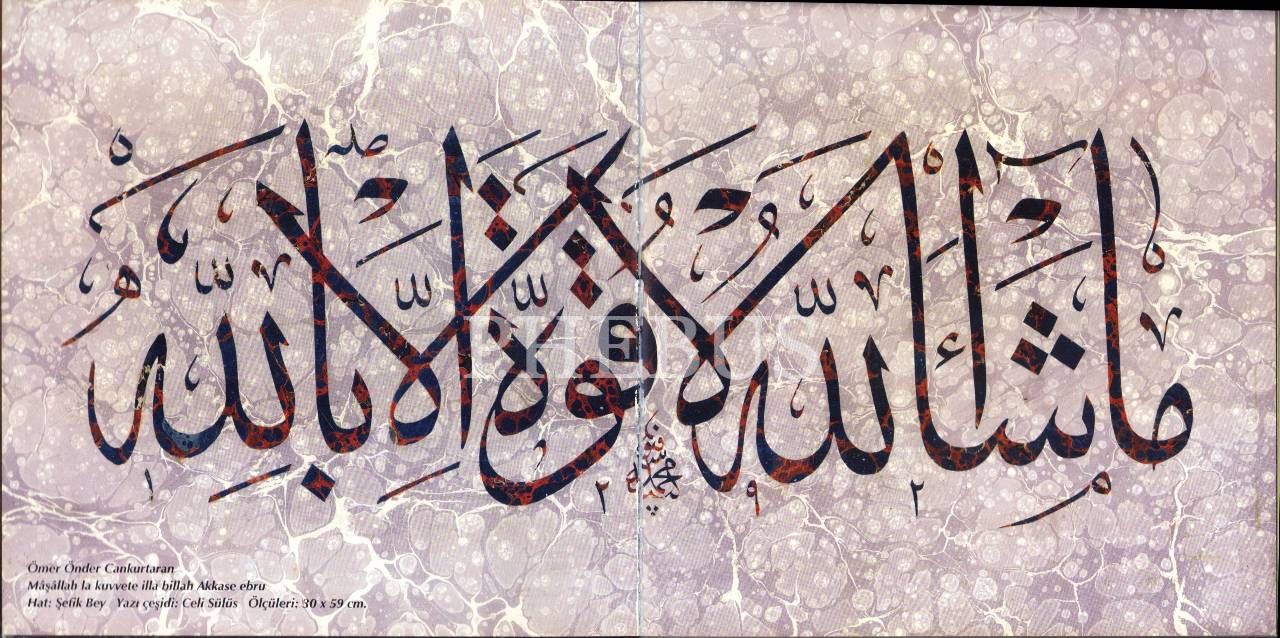 ما شاء الله لا قوة إلا بالله
PHEBUS
Ömer Önder Cankurtaran
Mâşâllah la kuvvete illa billah Akkase ebru
Hat: Şefik Bey Yazı çeşidi: Celi Sülüs Ölçüleri: 30 x 59 cm.